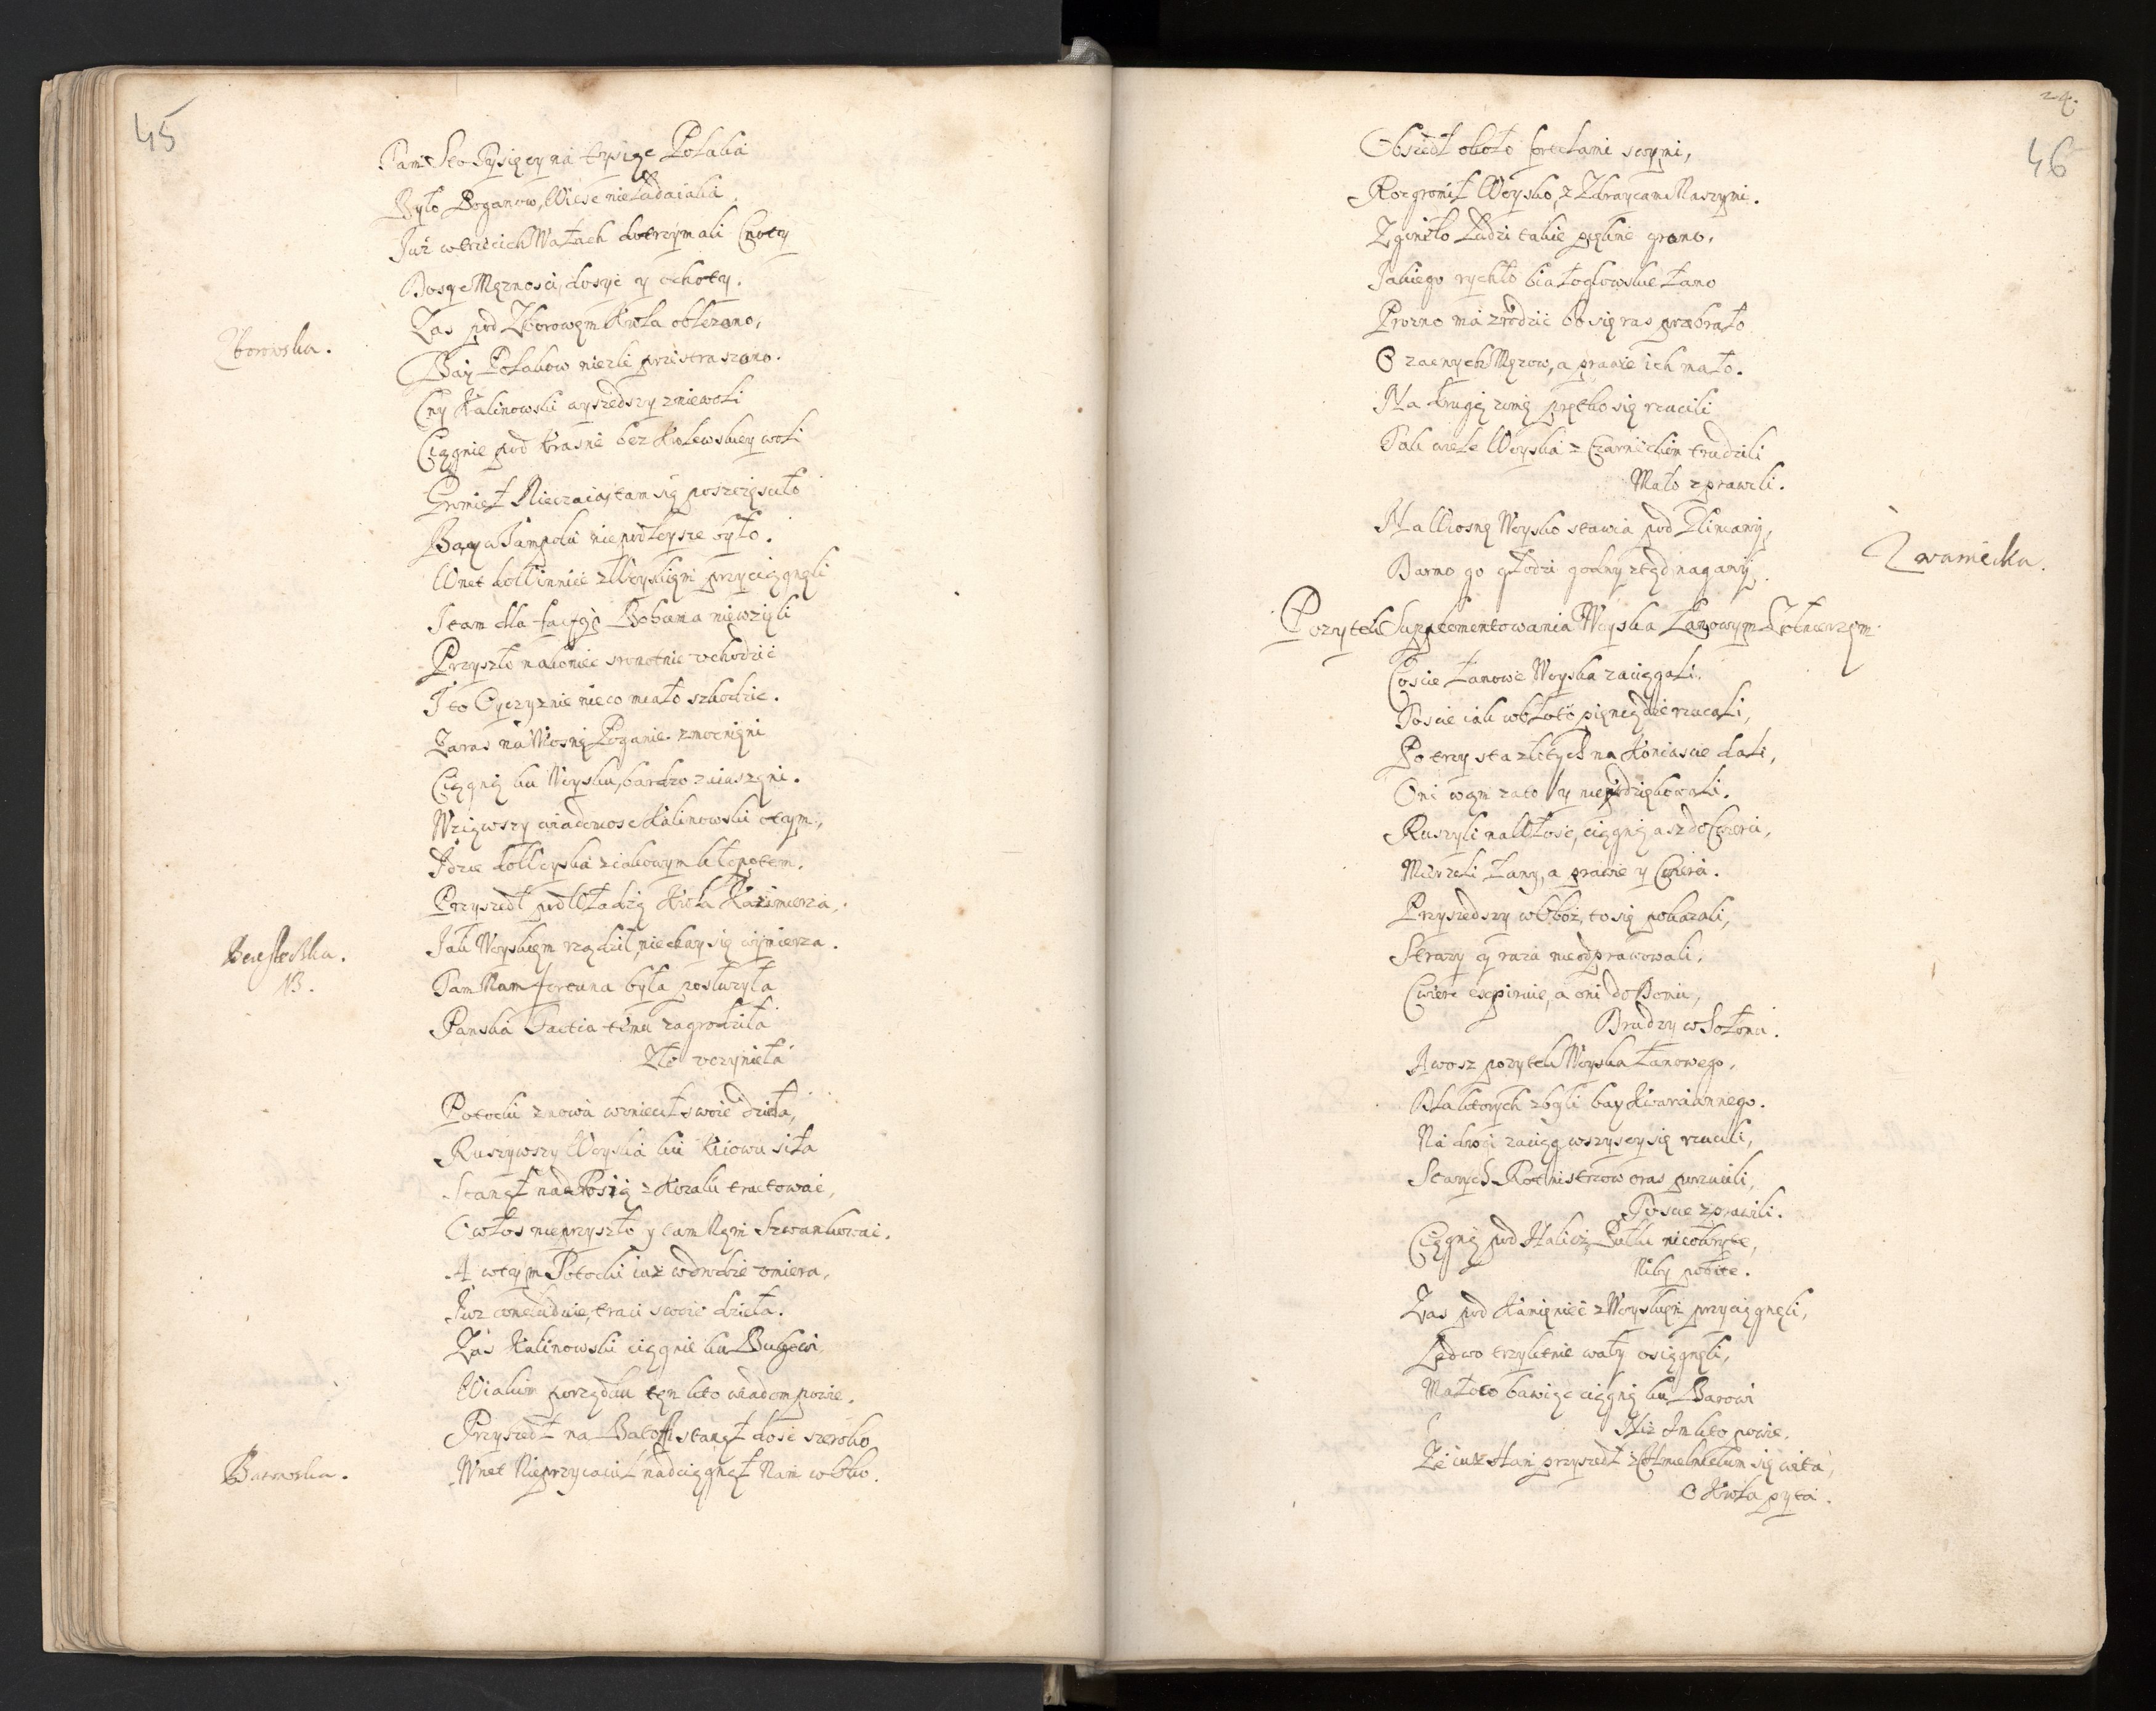 45
Tam Sto Tysięcy na tysiąc Polaka
Było Poganow, Wiesc nie ladaiaka
Już w trzecich Wałach dotrzymali Cnoty
Dosyc Męznosci, dosyć y ochoty.
Zborowska.
Zas pod Zborowem Krola oblezono,
Bay Polakow niezle przestraszono.
Cny Kalinowski wyszedszy z niewoli
Ciągnie pod Krasne bez Krolewskiey woli
Gromieł Nieczaia, tam się poszczęsciło
Bay u Jampola nie podleysze było.
Wnet do Winnice z Woyskiem przyciągnęli
I tam dla Bohuna nie wzięli
Przyszło nakoniec sromotnie uchodzić
I to Oyczyznie nieco miało szkodzic.
Zaras na Wiosnę Poganie zmocnieni
Ciągną ku Woysku, bardzo zaiuszeni.
Wziąwszy wiadomosc Kalinowski otym,
Idzie do Woyska z iakowym kłopotem.
Przyszedł pod Władzą Krola Kazimierza,
Berestecka.
NB.
Jak Woyskiem rządził, niechay się wymierza.
Tam Nam fortuna była posłuzyła
Panska factia temu zagrodziła
Zle uczyniela
Potocki znowu wzniecił swoie dzieła,
Ruszywszy Woyska ku Kiowu siła
Stanął nad Rosią z Kozaki tractować,
O włos nieprzyszło y tam Nęm Szwankować.
A wtym Potocki iuz w drodze umiera,
Juz conclduie, traci swoie dzieła.
Zas Kalinowski ciągnie ku Bugowi
W iakim porządku ten kto wiadom powie.
Przyszedł na Batoh stanął dosc szeroko
Batowska.
Wnet Nieprzyiaciel nadciągnął Nam w Oko.
24.
46
Obszedł około fortelami swymi,
Rozgromił Woysko, z Zdraycami Naszymi.
Zginęło Ludzi takie piękne grono,
Jakiego rychło białogłowskie łono
Prozno ma zrodzić bo się ras przebrało
O zacnych Męzow, a prawie ich mało.
Na drugą zimę prętko się rzucili
Tak wiele Woyska z Czarnieckim trudzili
Mało zprawili.
Na Wiosnę Woysko stawia pod Gliniany,
Zwaniecka.
Darmo go głodzi godny ztąd nagany,
Pozytek Supplementowania Woyska Łanowym Zołnierzem.
Coscie Łanowe Woyska zaciągali.
Toscie iak w błoto pieniądze rzucali,
Po trzy sta złotych na Koniascie dali,
Oni wam zato y niepodziękowali.
Ruszyli na Włosc, ciągną asz do Cwierci,
Mierzeli Łany, a prawie y Cwierci.
Przyszedszy w Oboz, to się pokazali,
Strazy y raza nieodprawowali.
Cwierc expiruie, a oni do Domu,
Brudzy w Sołomu.
Awosz pozytek Woyska Łanowego,
Dla ktorych zbyli bay Kwarciannego.
Na drogi zaciąg wszyscy się rzucili,
Starych Rotmistrzow oras porzucili,
Toscie zprawili.
Ciągną pod Halicz, Pułki nieobyte,
Niby pobite.
Zas pod Kamieniec z Woyskiem przyciągnęli,
Ledwo trzyletnie wały osiągnęli,
Małoco bawiąc ciągną ku Barowi
Niz Im kto powie.
Ze iusz Han przyszedł z Chmielnickim się wita,
O Krola pyta.